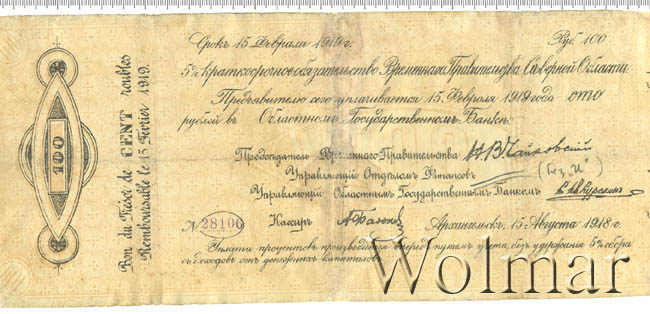 Срокъ 15 Февраля 1919 г.
Руб. 100
5% краткосрочное обязательство Временнаго Правительства Сѣверной Области
Предъявителю сего уплачивается 15 Февраля 1919 года сто
рублей въ Областномъ Государственномъ Банкѣ
Председатель Временнаго Правительства Н.В. Чайковскій
Управляющій Отдѣломъ Финансовъ
(без "И")
Управляющій Областнымъ Государственнымъ Банкомъ
Кассиръ
№ 28106
Архангельскъ, 15 Августа 1918 г.
Уплата процентовъ производится впередъ путемъ учета, безъ удержанія 5% сбора
съ доходовъ отъ денежныхъ капиталовъ.
100
Bon du Trésor de CENT roubles
Remboursable le 15 Février 1919.
Wolmar